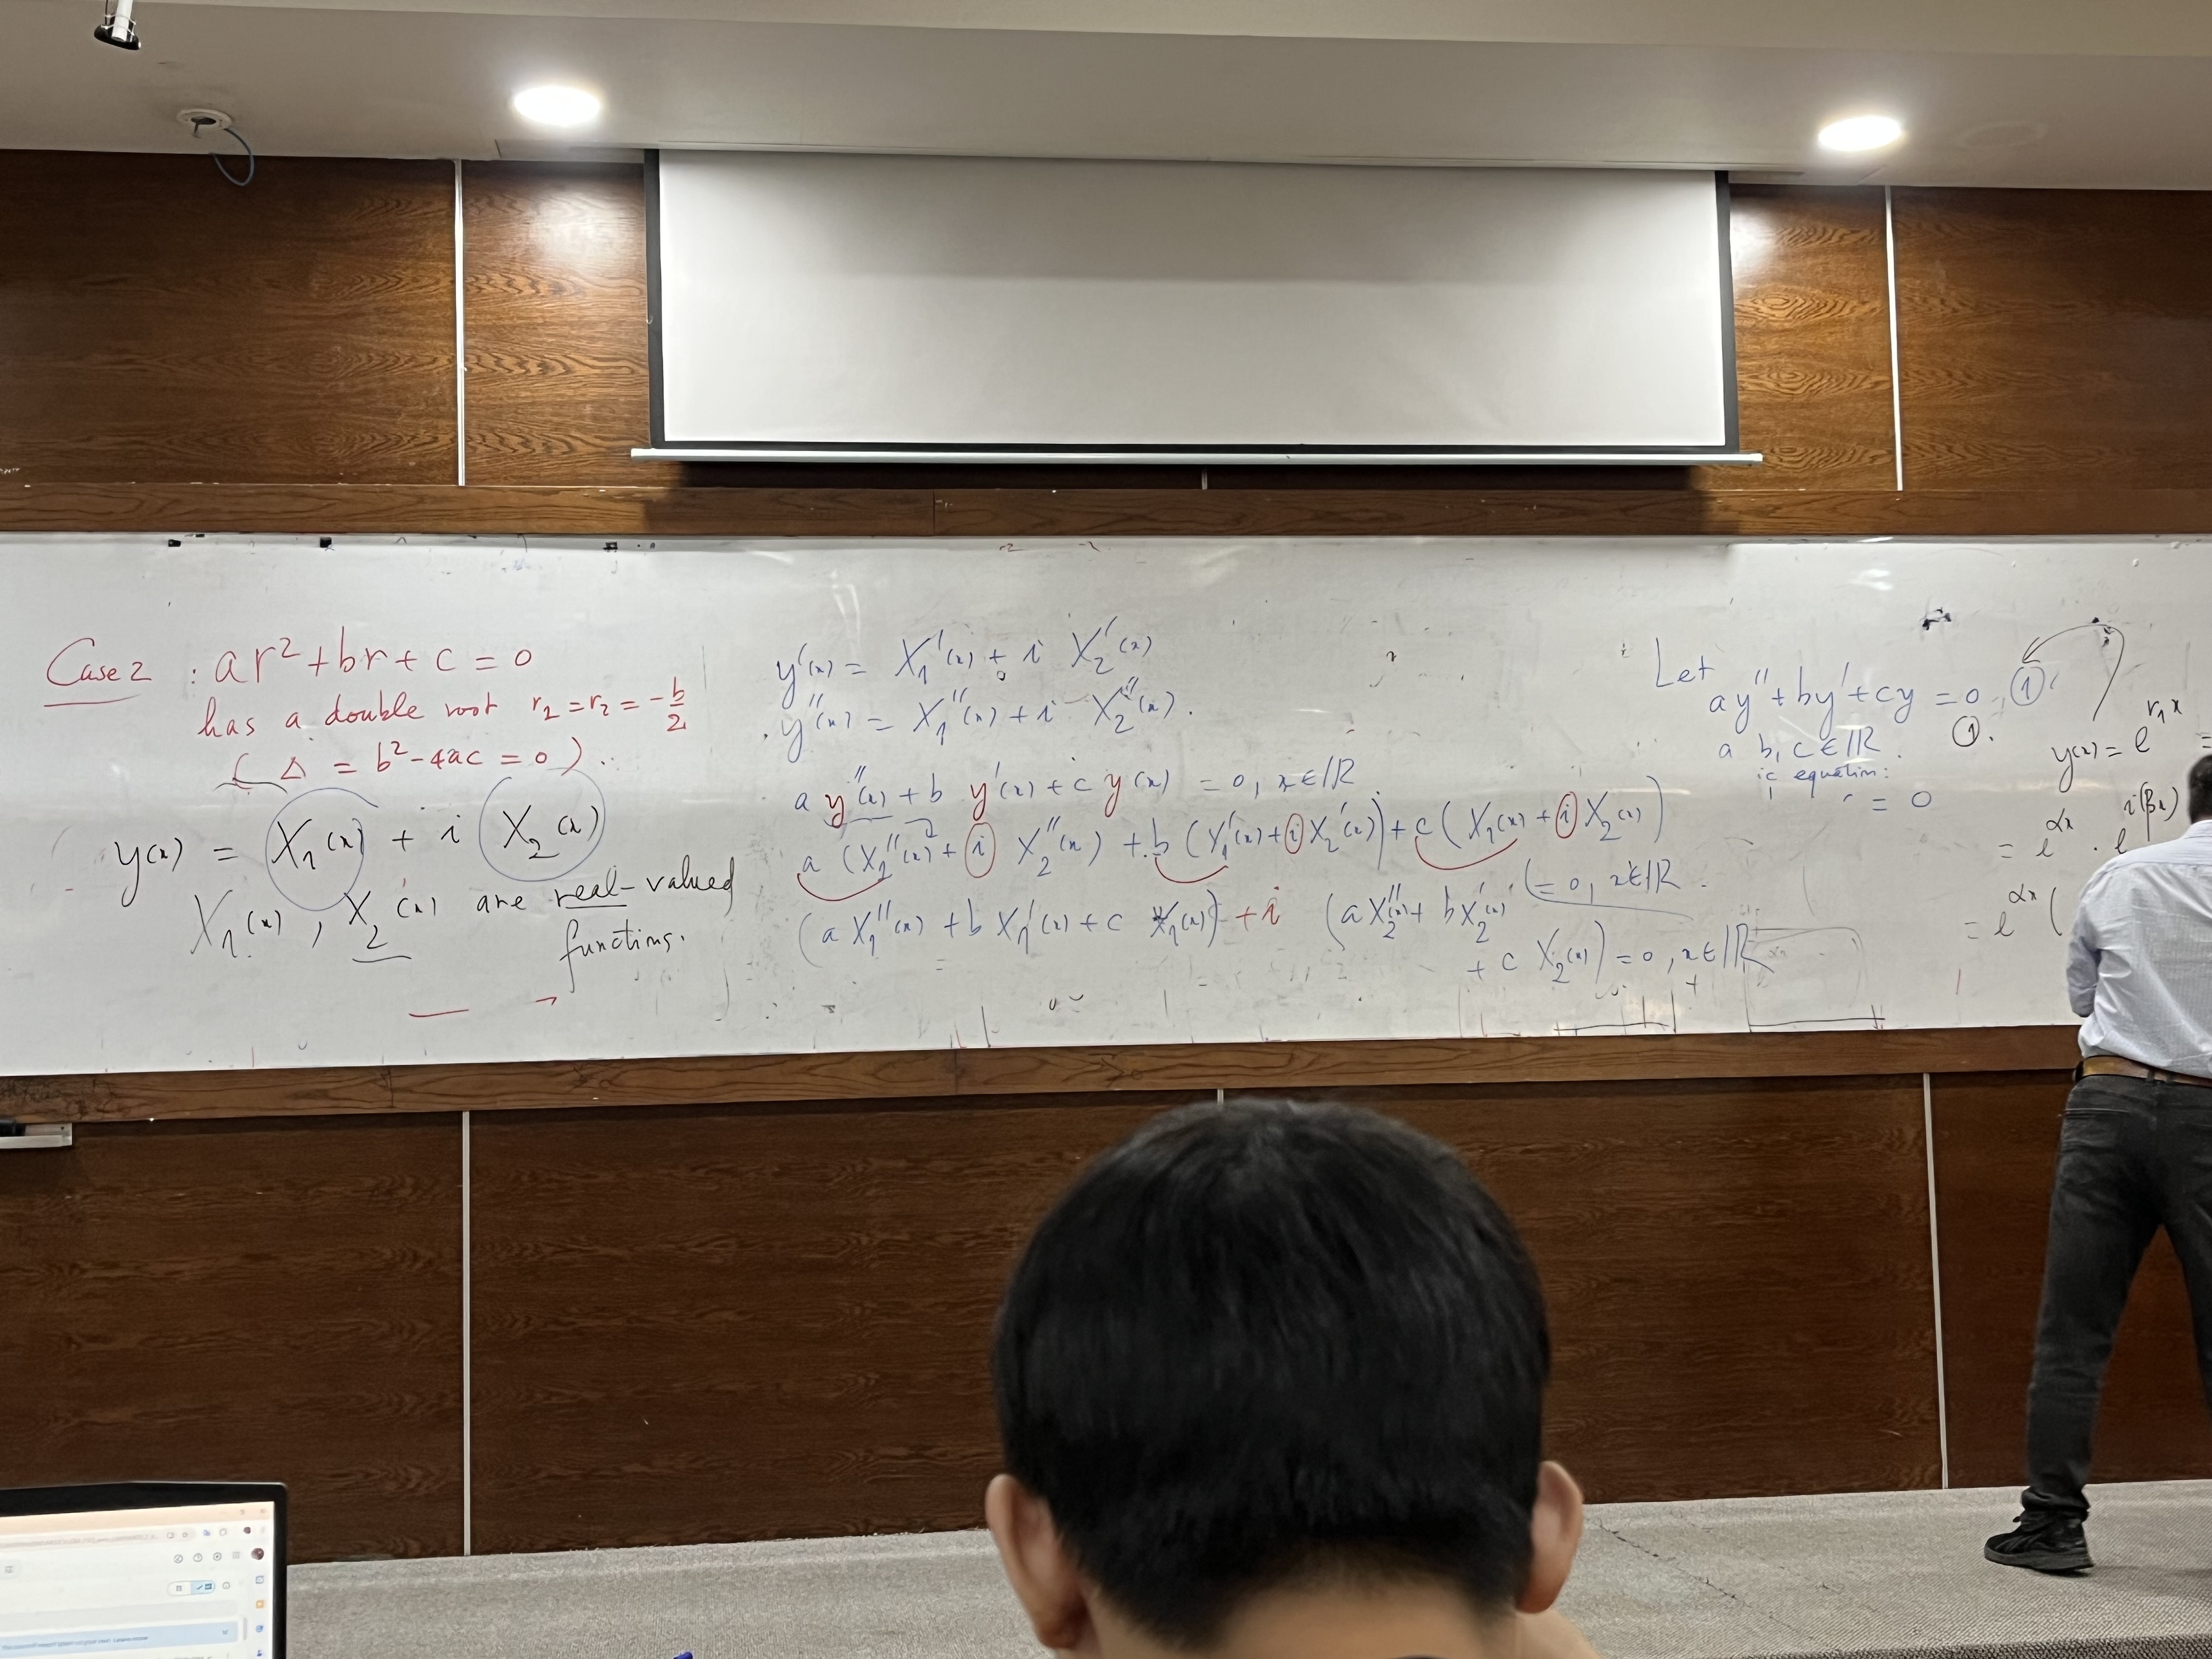 Case 2 : ar² + br + c = 0
has a double root r₂ = r₂ = -b/2
( Δ = b² - 4ac = 0 ).
y(x) = X₁(x) + i X₂(x)
X₁(x), X₂(x) are real-valued
functions.
y'(x) = X₁'(x) + i X₂'(x)
y''(x) = X₁''(x) + i X₂''(x).
a y''(x) + b y'(x) + c y(x) = 0, x ∈ ℝ
a (X₁''(x) + i X₂''(x)) + b (X₁'(x) + i X₂'(x)) + c (X₁(x) + i X₂(x))
(= 0, x ∈ ℝ.
(a X₁''(x) + b X₁'(x) + c X₁(x)) + i (a X₂''(x) + b X₂'(x)
+ c X₂(x)) = 0, x ∈ ℝ
Let
ay'' + by' + cy = 0 ①
a b, c ∈ ℝ. ①.
ic equation:
= 0
y(x) = e^{r₁x} =
= e^{αx} . e^{i(βx)}
= e^{αx} (